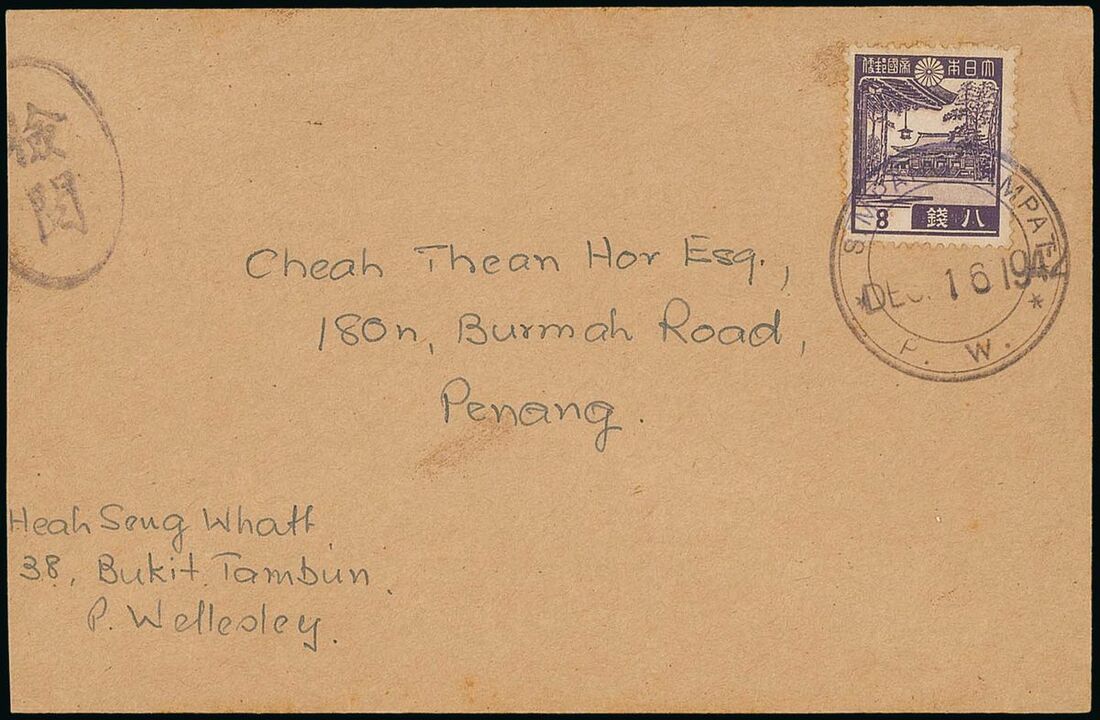 検
閲
大日本帝國郵便
8 八錢
SIMPANG AMPAT
DEC. 16 194
* P. W. *
Cheah Thean Hor Esq.,
180n, Burmah Road,
Penang.
Heah Seng Whatt
38, Bukit Tambun
P. Wellesley.